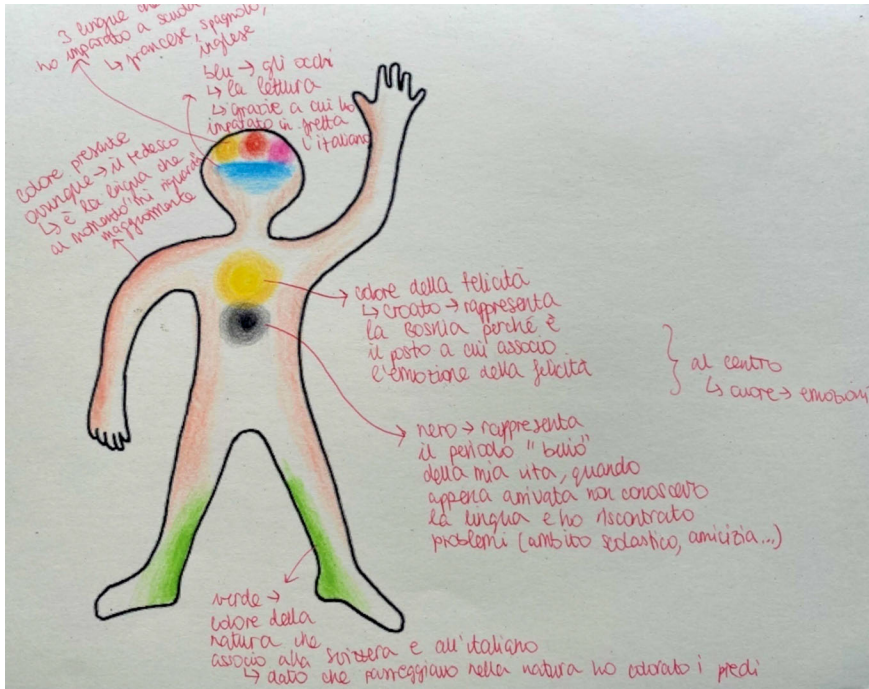 3 lingue che
ho imparato a scuola
↳ francese, spagnolo,
inglese
blu → gli occhi
↳ la lettura
↳ grazie a cui ho
imparato in fretta
l'italiano
colore presente
ovunque → il tedesco
↳ è la lingua che
al momento mi riguarda
maggiormente
colore della felicità
↳ croato → rappresenta
la Bosnia perché è
il posto a cui associo
l'emozione della felicità
al centro
↳ cuore → emozioni
nero → rappresenta
il periodo "buio"
della mia vita, quando
appena arrivata non conoscevo
la lingua e ho riscontrato
problemi (ambito scolastico, amicizia...)
verde →
colore della
natura che
associo alla Svizzera e all'italiano
↳ dato che passeggiavo nella natura ho colorato i piedi